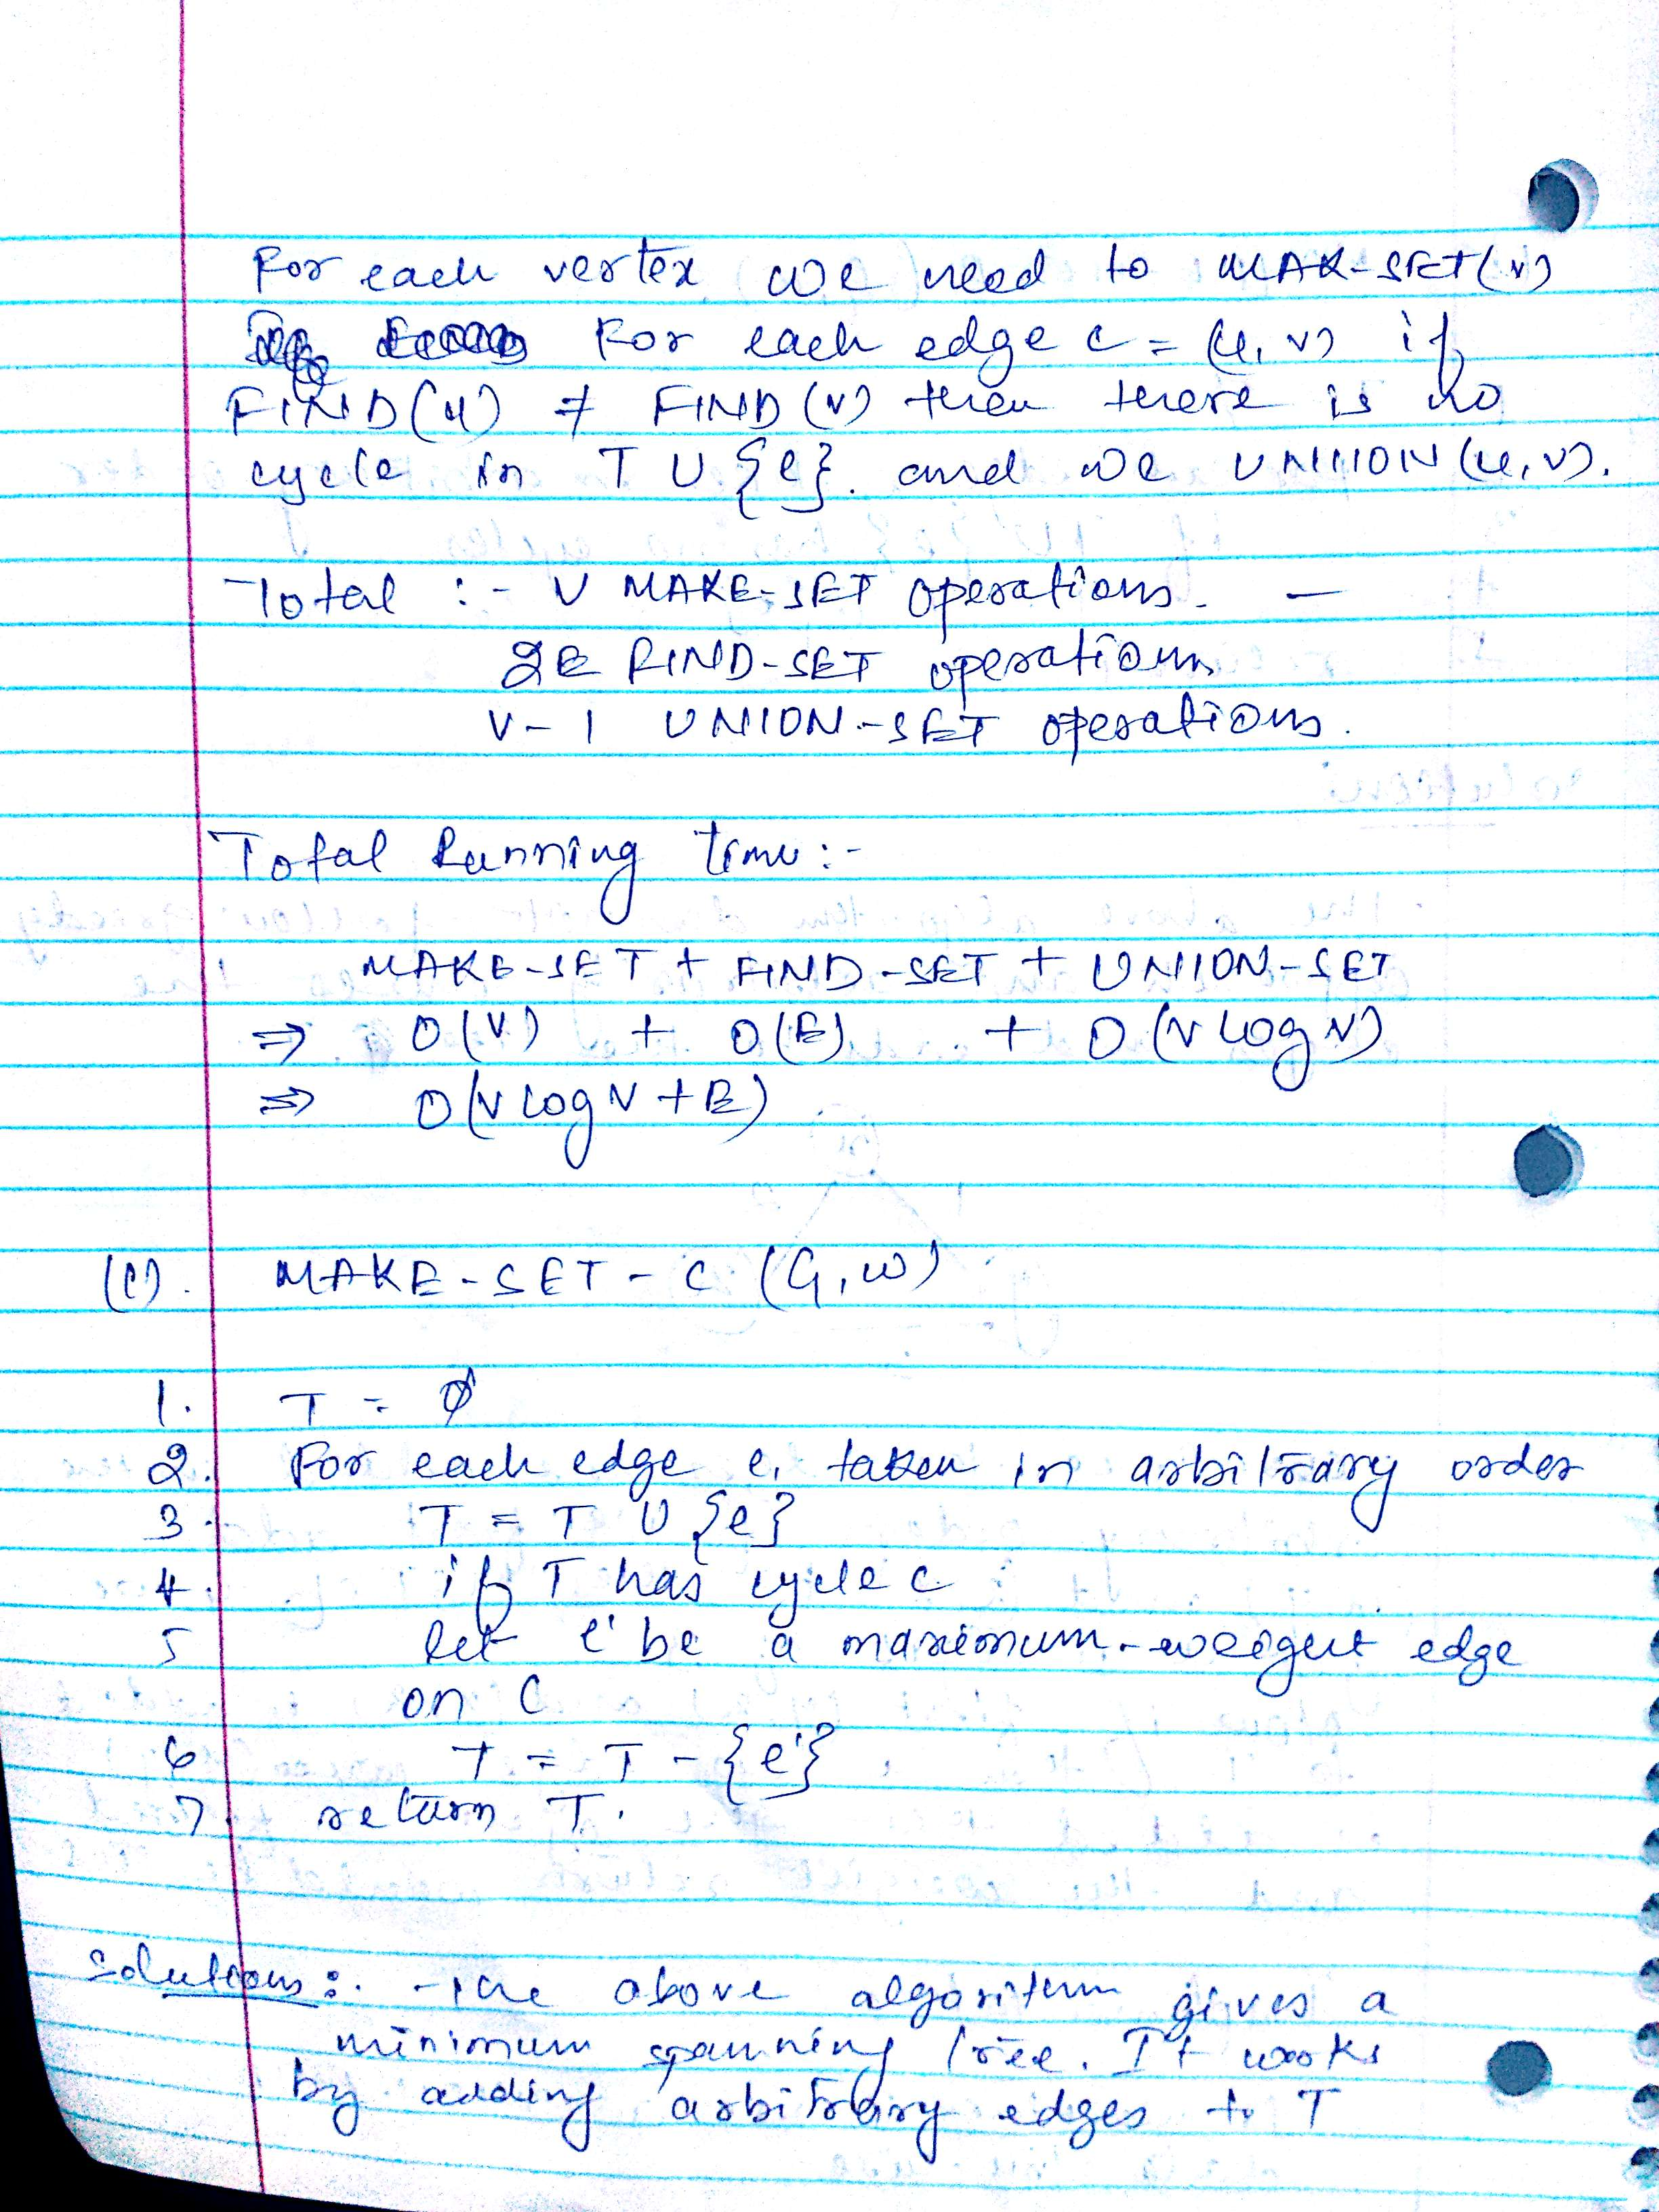 For each vertex we need to MAK-SET(v)
For each edge e = (u, v) if
FIND(u) ≠ FIND(v) then there is no
cycle in T U {e}. and we UNION(u, v).
Total :- V MAKE-SET operations. -
2E FIND-SET operations
V-1 UNION-SET operations.
Total Running time:-
MAKE-SET + FIND-SET + UNION-SET
⇒ O(V) + O(E) + O(V log V)
⇒ O(V log V + E)
(C). MAKE-SET-C (G, w)
1. T = Ø
2. For each edge e, taken in arbitrary order
3. T = T U {e}
4. if T has cycle c
5 let e' be a maximum-weight edge
on C
6 T = T - {e'}
7. return T.
Solution:. The above algorithm gives a
minimum spanning tree. It works
by adding arbitrary edges to T